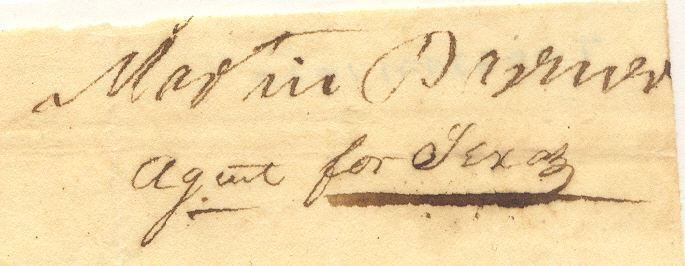 Martin
Agent for Texas